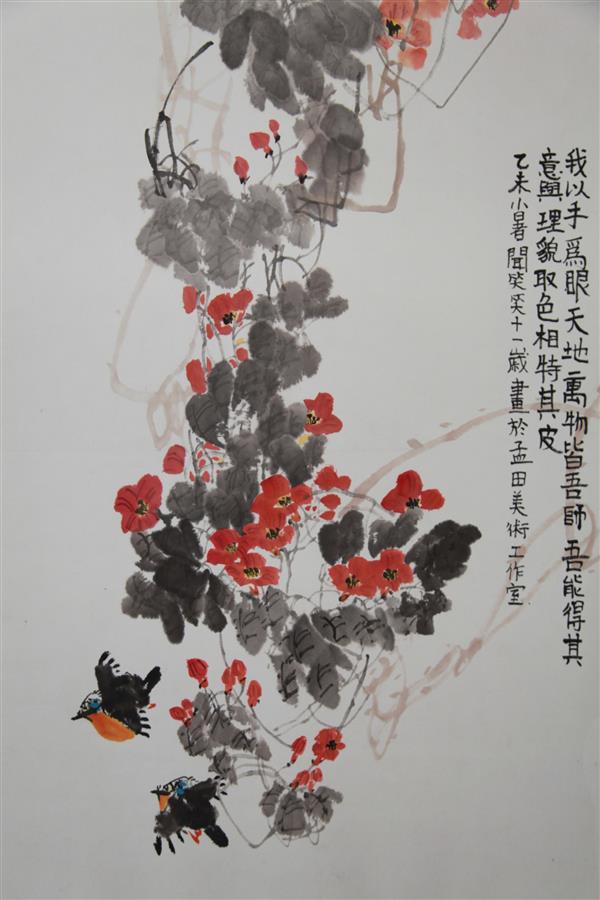 我以手爲眼天地萬物皆吾師吾能得其
意與理貌取色相特其皮
乙未小暑聞十一歲畫於孟田美術工作室